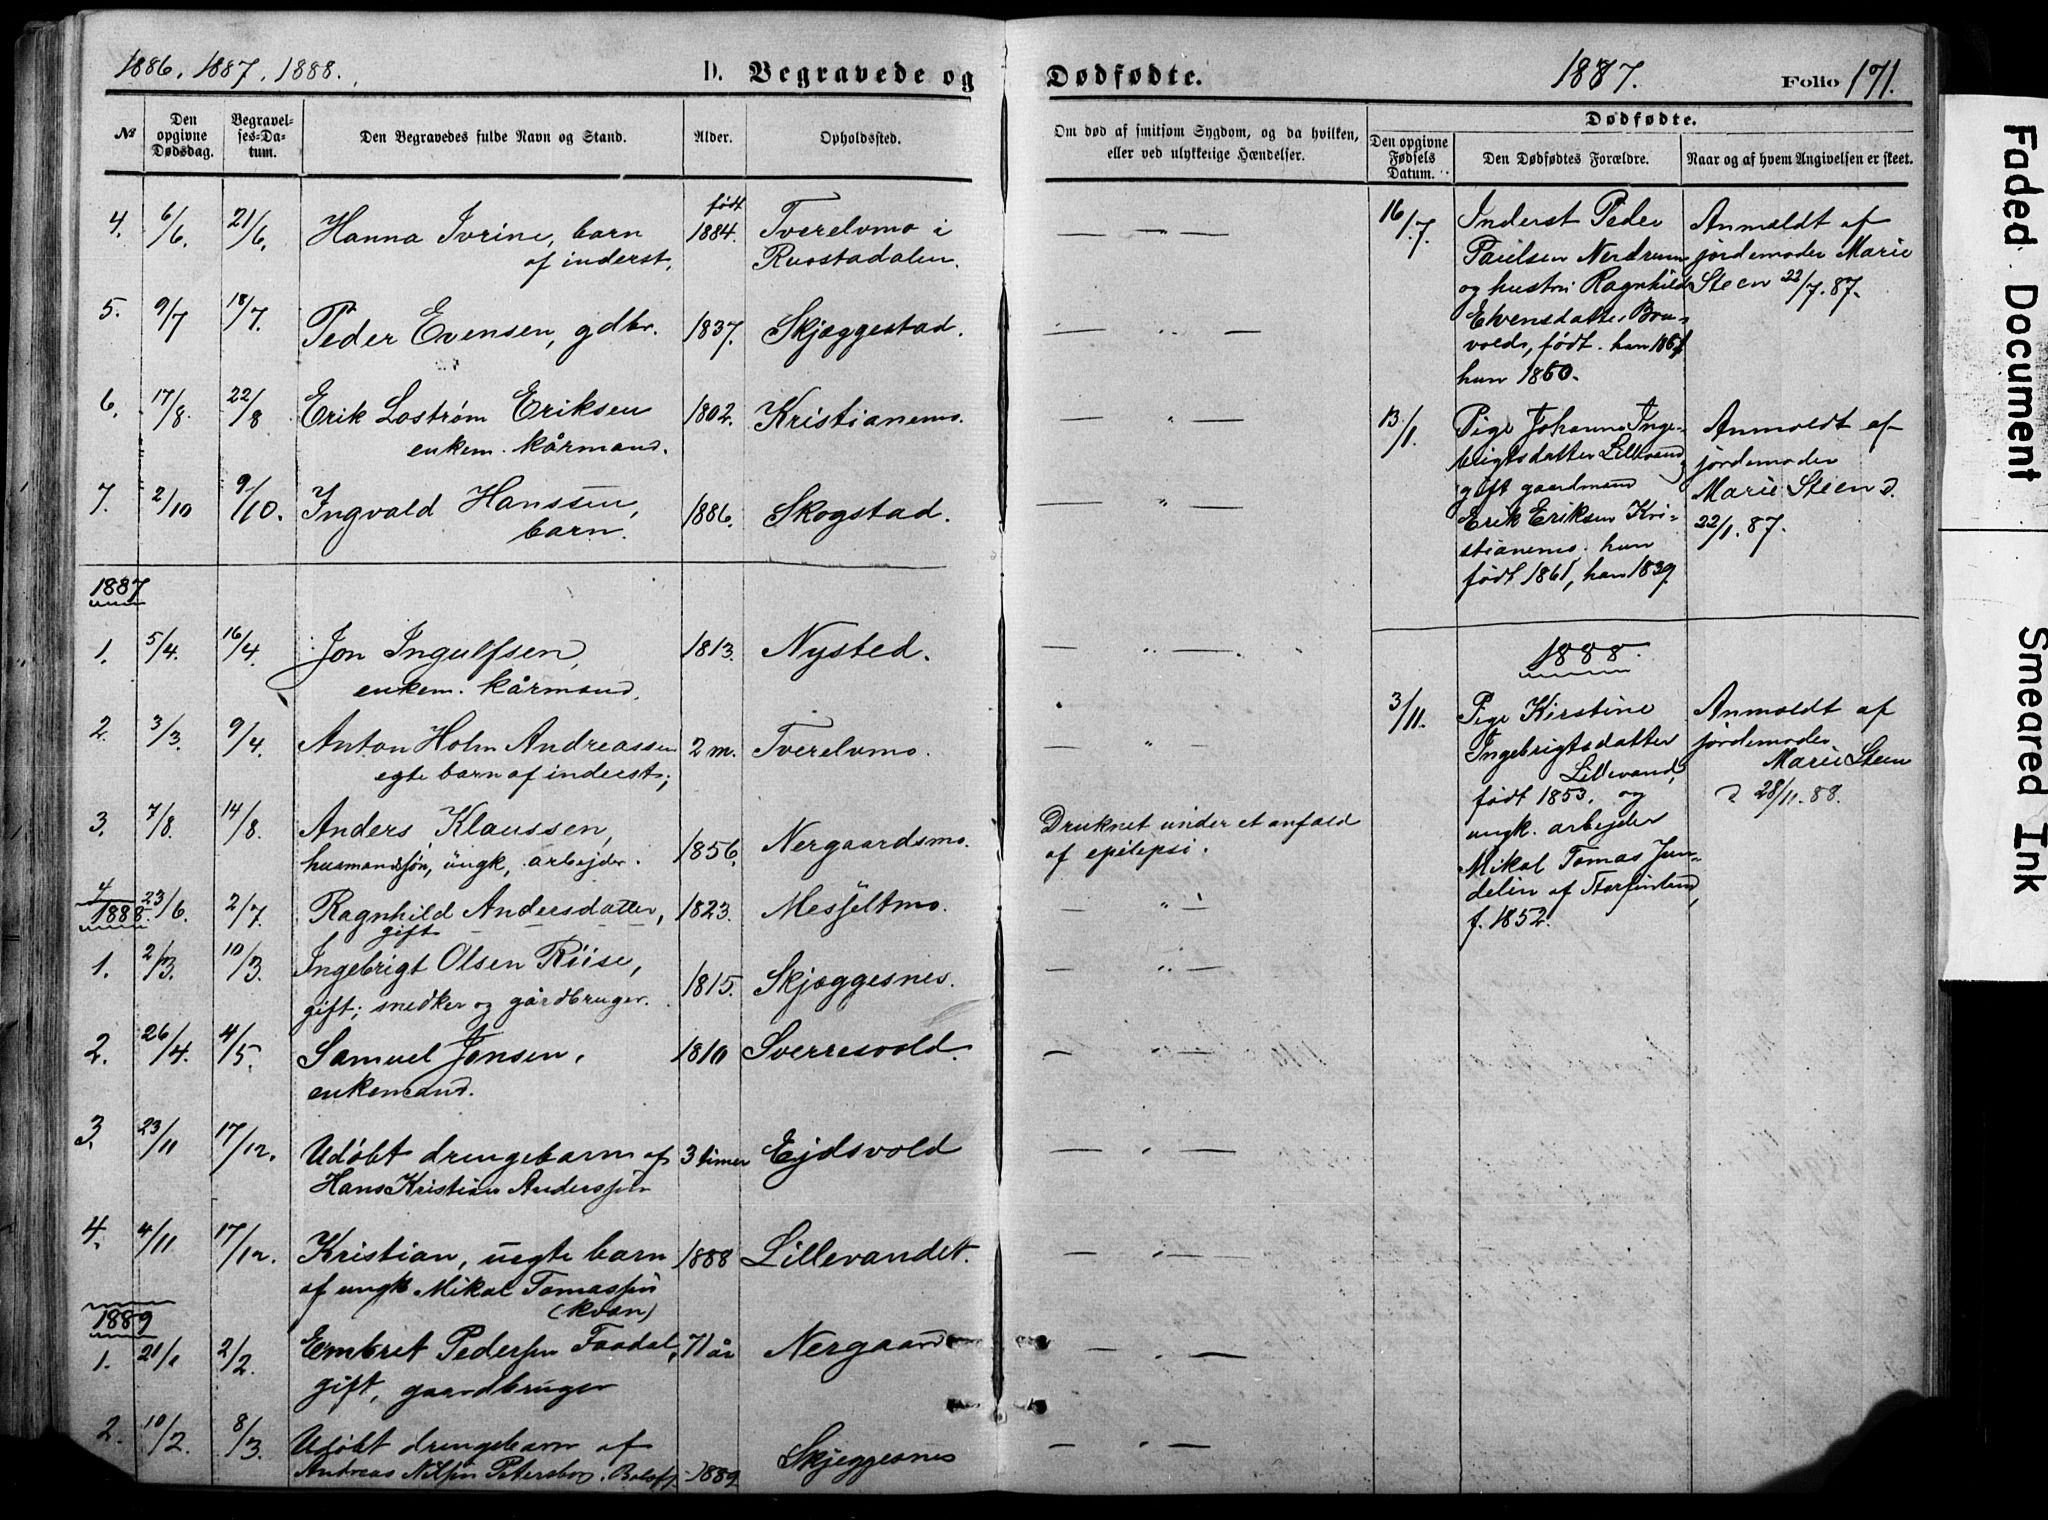 1886, 1887, 1888.
D. Begravede og
Dødfødte.
1887.
Folio 171.
№
Den opgivne Dødsdag.
Begravel-
ses-Da-
tum.
Den Begravedes fulde Navn og Stand.
Alder.
Opholdssted.
Om død af smitsom Sygdom, og da hvilken,
eller ved ulykkelige Hændelser.
Dødfødte.
Den opgivne
Fødsels
Datum.
Den Dødfødtes Forældre.
Naar og af hvem Angivelsen er skeet.
4. 6/6. 21/6. Hanna Ivrine, barn født 1884. Tverelvmo i
af inderst, Ruostadalen.
5. 9/7 18/7. Peder Evensen, gdbr. 1837. Skjæggestad.
6. 17/8. 22/8 Erik Lostrøm Eriksen 1802. Kristianemo.
enkem. kårmand.
7. 2/10 9/10. Ingvald Hanssen, 1886. Skogstad.
barn.
1887
1. 5/4. 16/4. Jon Ingulfsen, 1813. Nysted.
enkem. kårmand.
2. 3/3. 9/4. Anton Holm Andreassen 2 m. Tverelvmo.
egte barn af inderst;
3. 7/8. 14/8. Anders Klaussen, 1856. Nergaardsmo. Druknet under et anfald
husmandssøn, ungk, arbejder. af epilepsi.
4 23/6. 2/7. Ragnhild Andersdatter, 1823. Messeltmo.
1888. gift
1. 2/3. 10/3. Ingebrigt Olsen Riise, 1815. Skjæggesnes.
gift; snedker og gårdbruger.
2. 26/4. 4/5. Samuel Jonsen, 1810 Sverresvold.
enkemand.
3. 23/11 17/12. Udøbt drengebarn af 3 timer Ejdsvold
Hans Kristian Anderssen
4. 4/11 17/12. Kristian, uegte barn 1888 Lillevandet.
af ungk Mikal Tomassen
(kvæn)
1889
1. 21/1 2/2. Embret Pedersen Faadal, 71 år Nergaard
gift, gaardbruger
2. 10/2. 8/3. Udøbt drengebarn af 1889 Skjeggesnes
Andreas Nilsen Petersborg, Balsfj.
16/7. Inderst Peder
Paulsen Nerdrum
og hustru Ragnhild
Elvensdatter Bru-
vold, født. han 1861
hun 1860.
Anmeldt af
jordemoder Marie
Steen 22/7. 87.
13/1. Pige Johanne Inge-
brigtsdatter Lillevand,
gift gaardmand
Erik Eriksen Kri-
stianemo. hun
født 1861, han 1839.
Anmeldt af
jordemoder
Marie Steen d.
22/1. 87.
1888.
3/11. Pige Kirstine
Ingebrigtsdatter
Lillevand,
født 1853. og
ungk. arbejder
Mikal Tomas Jun-
delin af Storfinland,
f. 1852.
Anmeldt af
jordemoder
Marie Steen
d. 28/11. 88.
Faded Document
Smeared Ink